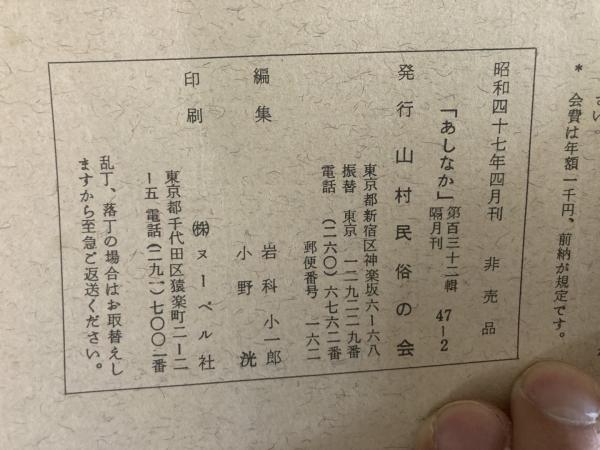 さい。
* 会費は年額一千円、前納が規定です。
昭和四十七年四月刊 非売品
「あしなか」第百三十二輯 隔月刊 47―2
発行 山村民俗の会
東京都新宿区神楽坂六―六八
振替 東京 一二九二二九番
電話 (二六〇)六七六二番
郵便番号 一六二
編集 岩科小一郎
小野洸
印刷 ㈱ヌーベル社
東京都千代田区猿楽町二―二
―五 電話(二九二)七〇〇二番
乱丁、落丁の場合はお取替えし
ますから至急ご返送ください。